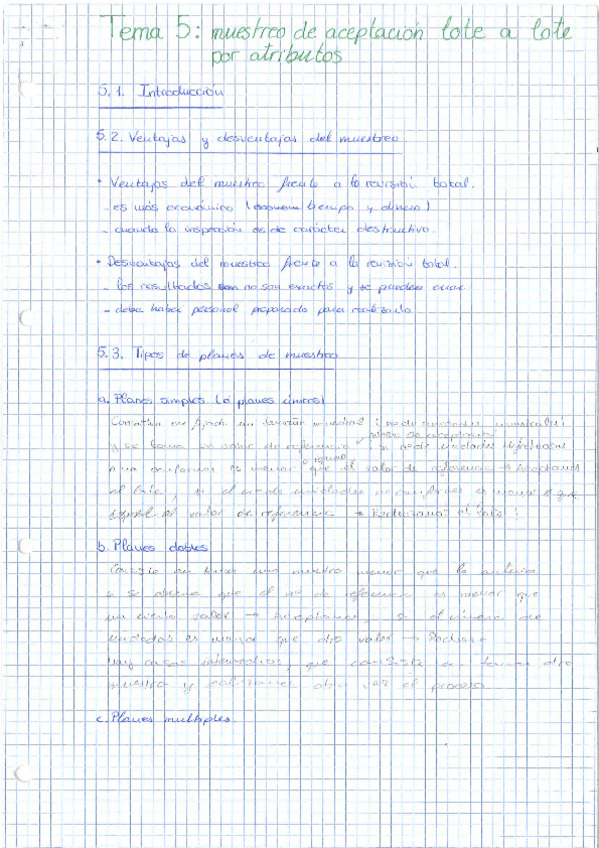 Tema 5: muestreo de aceptación lote a lote
por atributos
5.1. Introducción
5.2. Ventajas y desventajas del muestreo.
• Ventajas del muestreo frente a la revisión total.
- es más económico ( tiempo y dinero)
- cuando la inspección es de carácter destructivo.
• Desventajas del muestreo frente a la revisión total.
- los resultados no son exactos y se pueden errar
- debe haber personal preparado para realizarlo
5.3. Tipos de planes de muestreo
a. Planes simples (o planes únicos)
Consiste en fijar un tamaño muestral (nº de unidades
y se toma un valor de referencia si nº de unidades
igual
es menor que el valor de referencia → Aceptamos
el lote, si el nº de unidades no conformes es mayor o que
el valor de referencia → Rechazamos el lote
b. Planes dobles
Consiste en tomar una muestra menor que la anterior
si se observa que el nº de referencia es menor que
un cierto valor → Aceptamos, si el número de
unidades es mayor que otro valor → Rechazo
hay casos intermedios, que consiste en tomar otra
muestra y realizamos otra vez el proceso
c. Planes multiples